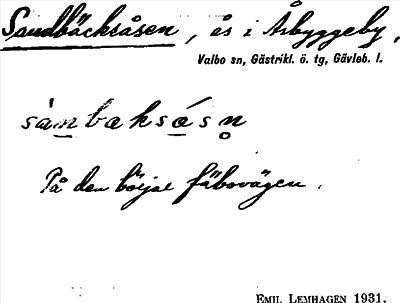 Sandbäcksåsen, ås i Årbyggeby,
Valbo sn, Gästrikl. ö. tg, Gävleb. l.
sànbæksåsn
På den börjar fäbovägen.
Emil Lemhagen 1931.